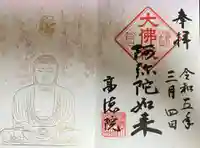 奉拝
令和五年
三月四日
大佛
阿弥陀如来
高徳院